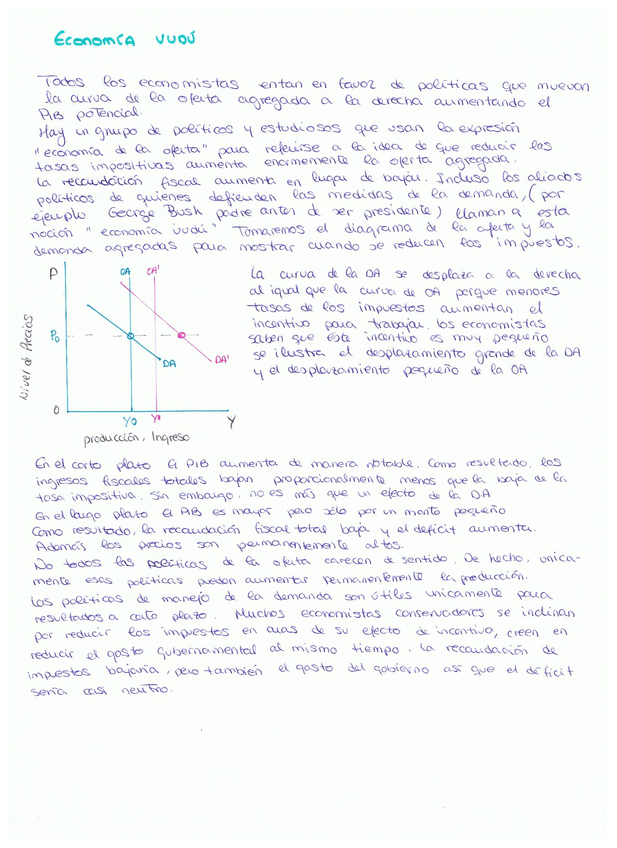 Economía vudú
Todos los economistas entan en favor de políticas que muevan
la curva de la oferta agregada a la derecha aumentando el
PIB potencial.
Hay un grupo de políticos y estudiosos que usan la expresión
"economía de la oferta" para referirse a la idea de que reducir las
tasas impositivas aumenta enormemente la oferta agregada.
La recaudación fiscal aumenta en lugar de bajar. Incluso los aliados
políticos de quienes defienden las medidas de la demanda, (por
ejemplo George Bush padre antes de ser presidente) llaman a esta
noción "economía vudú" Tomaremos el diagrama de la oferta y la
demanda agregadas para mostrar cuando se reducen los impuestos.
P
OA OA'
Nivel de Precios
P0
DA
DA'
0
Y0
Y
producción, Ingreso
La curva de la DA se desplaza a la derecha
al igual que la curva de OA porque menores
tasas de los impuestos aumentan el
incentivo para trabajar. los economistas
saben que éste incentivo es muy pequeño
se ilustra el desplazamiento grande de la DA
y el desplazamiento pequeño de la OA
En el corto plazo el PIB aumenta de manera notable. Como resultado, los
ingresos fiscales totales bajan proporcionalmente menos que la baja de la
tasa impositiva. Sin embargo, no es más que un efecto de la DA
En el largo plazo el PIB es mayor pero sólo por un monto pequeño
Como resultado, la recaudación fiscal total baja y el deficit aumenta.
Además los precios son permanentemente altos.
No todas las políticas de la oferta carecen de sentido. De hecho, unica-
mente esas políticas pueden aumentar permanentemente la producción.
Las políticas de manejo de la demanda son útiles unicamente para
resultados a corto plazo. Muchos economistas conservadores se inclinan
por reducir los impuestos en aras de su efecto de incentivo, creen en
reducir el gasto gubernamental al mismo tiempo. la recaudación de
impuestos bajaría, pero también el gasto del gobierno así que el déficit
sería casi neutro.